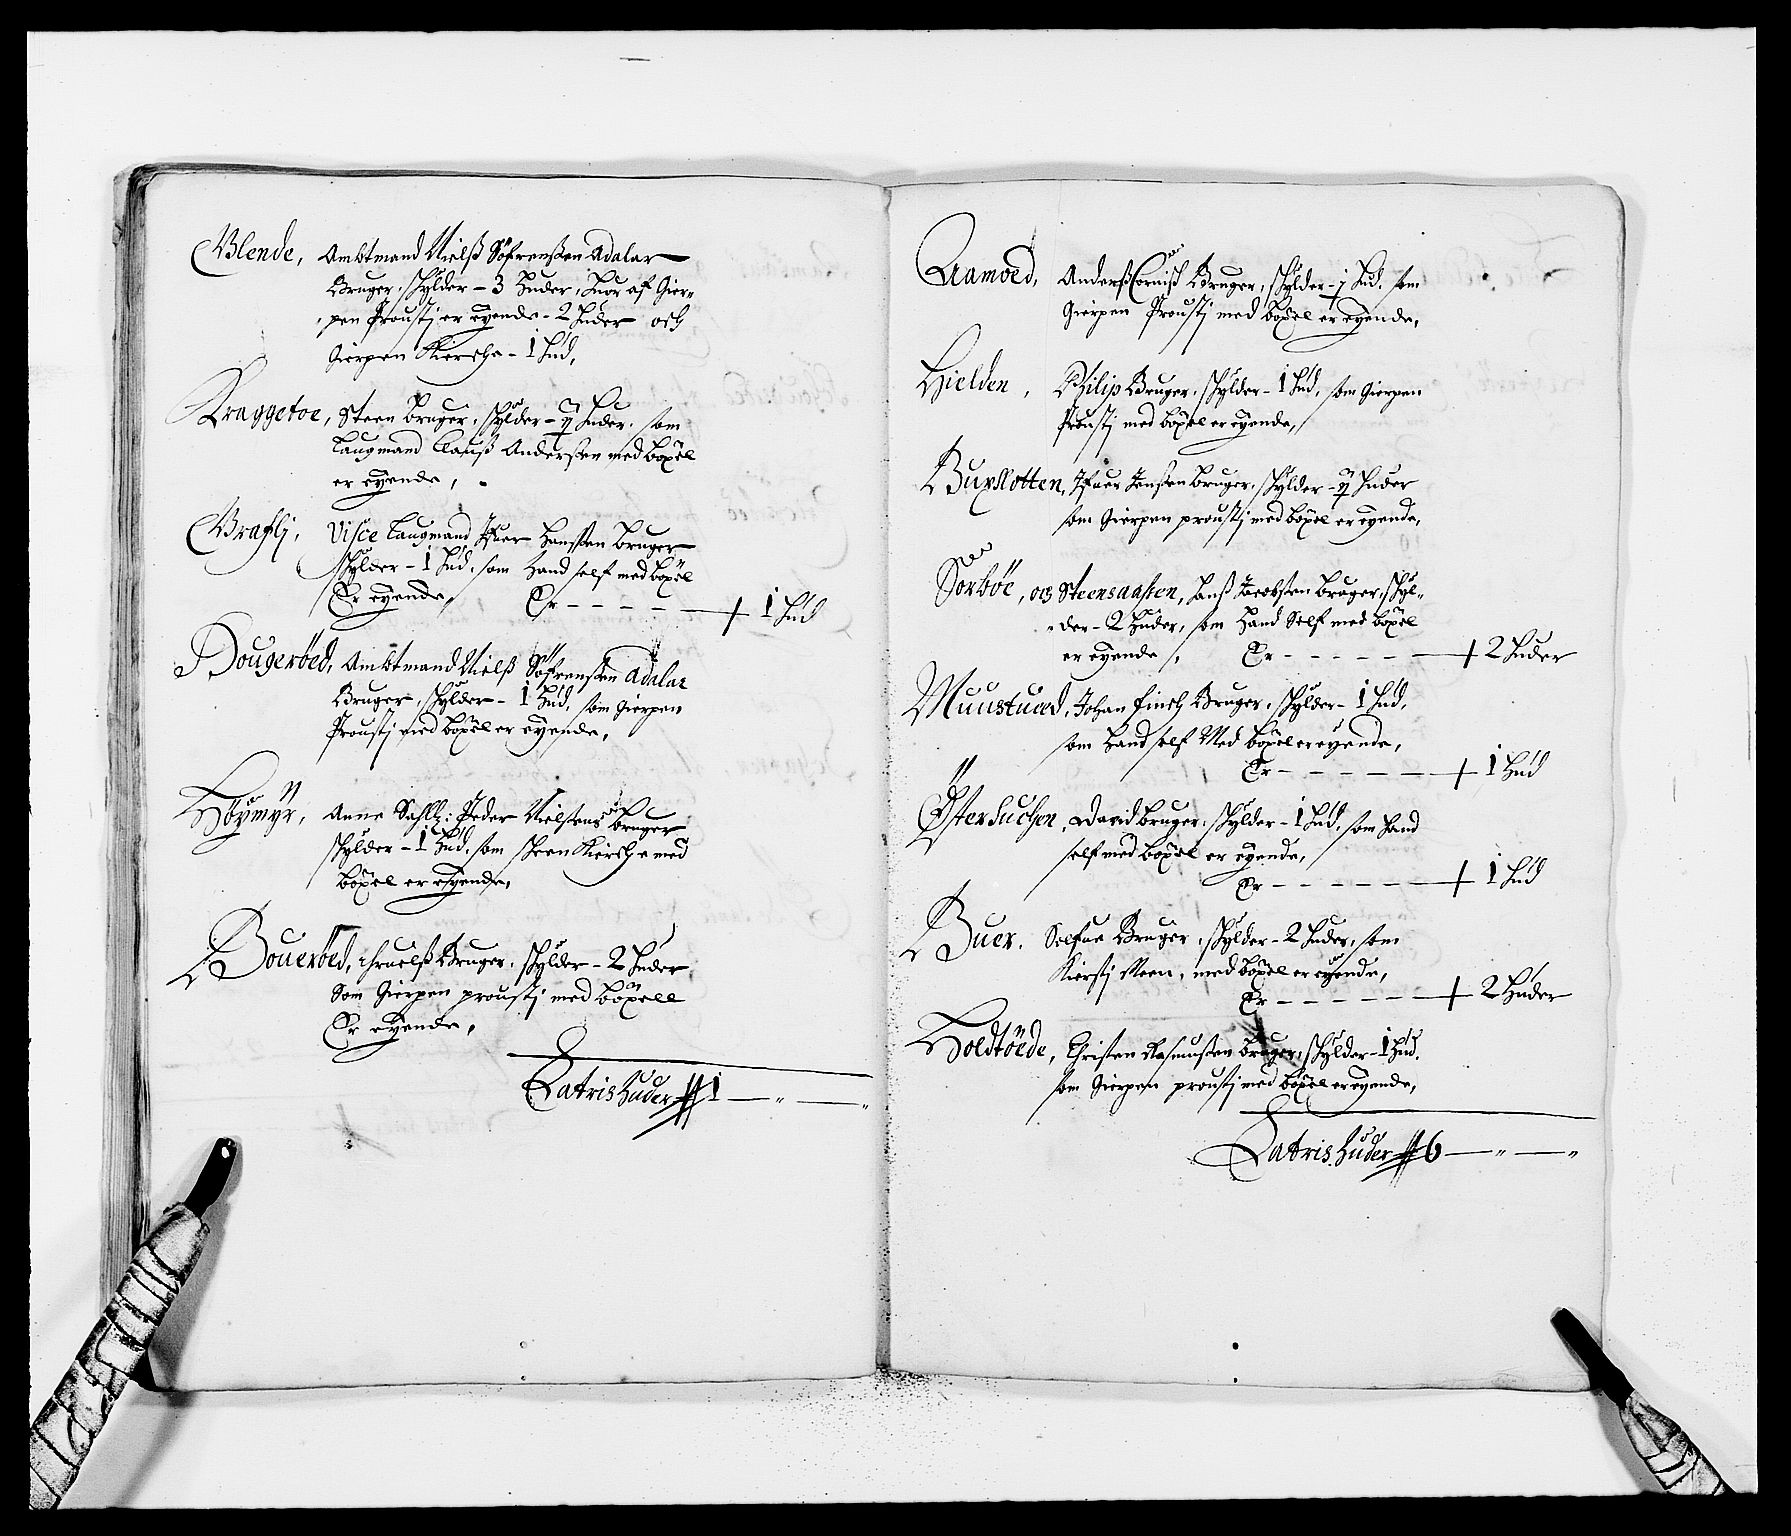 Blende, Ambtmand Nielß Söfrenßen Adalar
Bruger, skylder - 3 Huder, huor af Gier-
pen Proustj er eyende - 2 Huder och
Gierpen Kierche - 1 Hud,
Kraggetoe, Steen Bruger, skylder - Huder, som
Laugmand Clauß Anderßen med böxel
er eyende,
Graflj, Vice Laugmand Ifuer Hanßen Bruger
skylder - 1 Hud, som Hand self med böxel
Er eyende, Er - - - - - 1 Hud
Bougeröed, Ambtmand Nielß Söfrenßen Adalar
Bruger, skylder - 1 Hud, som Gierpen
Proustj med böxel er eyende,
Höymyr, Anne Sahl: Peder Nielsens Bruger
skylder - 1 Hud, som skeen Kierche med
böxel er eyende,
Boueröed, Bruger, skylder - 2 Huder
Som Gierpen proustj med böxell
Er eyende,
Latris huder 1 — „ — „
Aamoed, Anderß Cornisch Bruger, skylder - 1 Hud, som
Gierpen Proustj med böxel er eyende,
Hielden, Philip Bruger, skylder - 1 Hud, som Gierpen
Proustj med böxel er eyende,
Buxslotten, Ifuer Jenßen Bruger, skylder - Huder
som Gierpen proustj med böxel er eyende,
Sorböe, og Steensaasen, Hanß Jacobsen Bruger, skyl-
der - 2 Huder, som Hand Self med böxel
er eyende, Er - - - - - 2 Huder
Muustued, Johan Finch Bruger, skylder - 1 Hud,
som Hand self Med böxel er eyende,
Er - - - - - 1 Hud
Østerhuchen, David Bruger, skylder - 1 Hud, som Hand
self med böxel er eyende,
Er - - - - - 1 Hud
Buer, Solfue Bruger, skylder - 2 Huder, som
Kierstj Meen, med böxel er eyende,
Er - - - - - 2 Huder
Holdtöede, Christen Rasmusen Bruger, skylder - 1 Hud,
som Gierpen proustj med böxel er eyende,
Latris huder 6 — „ — „